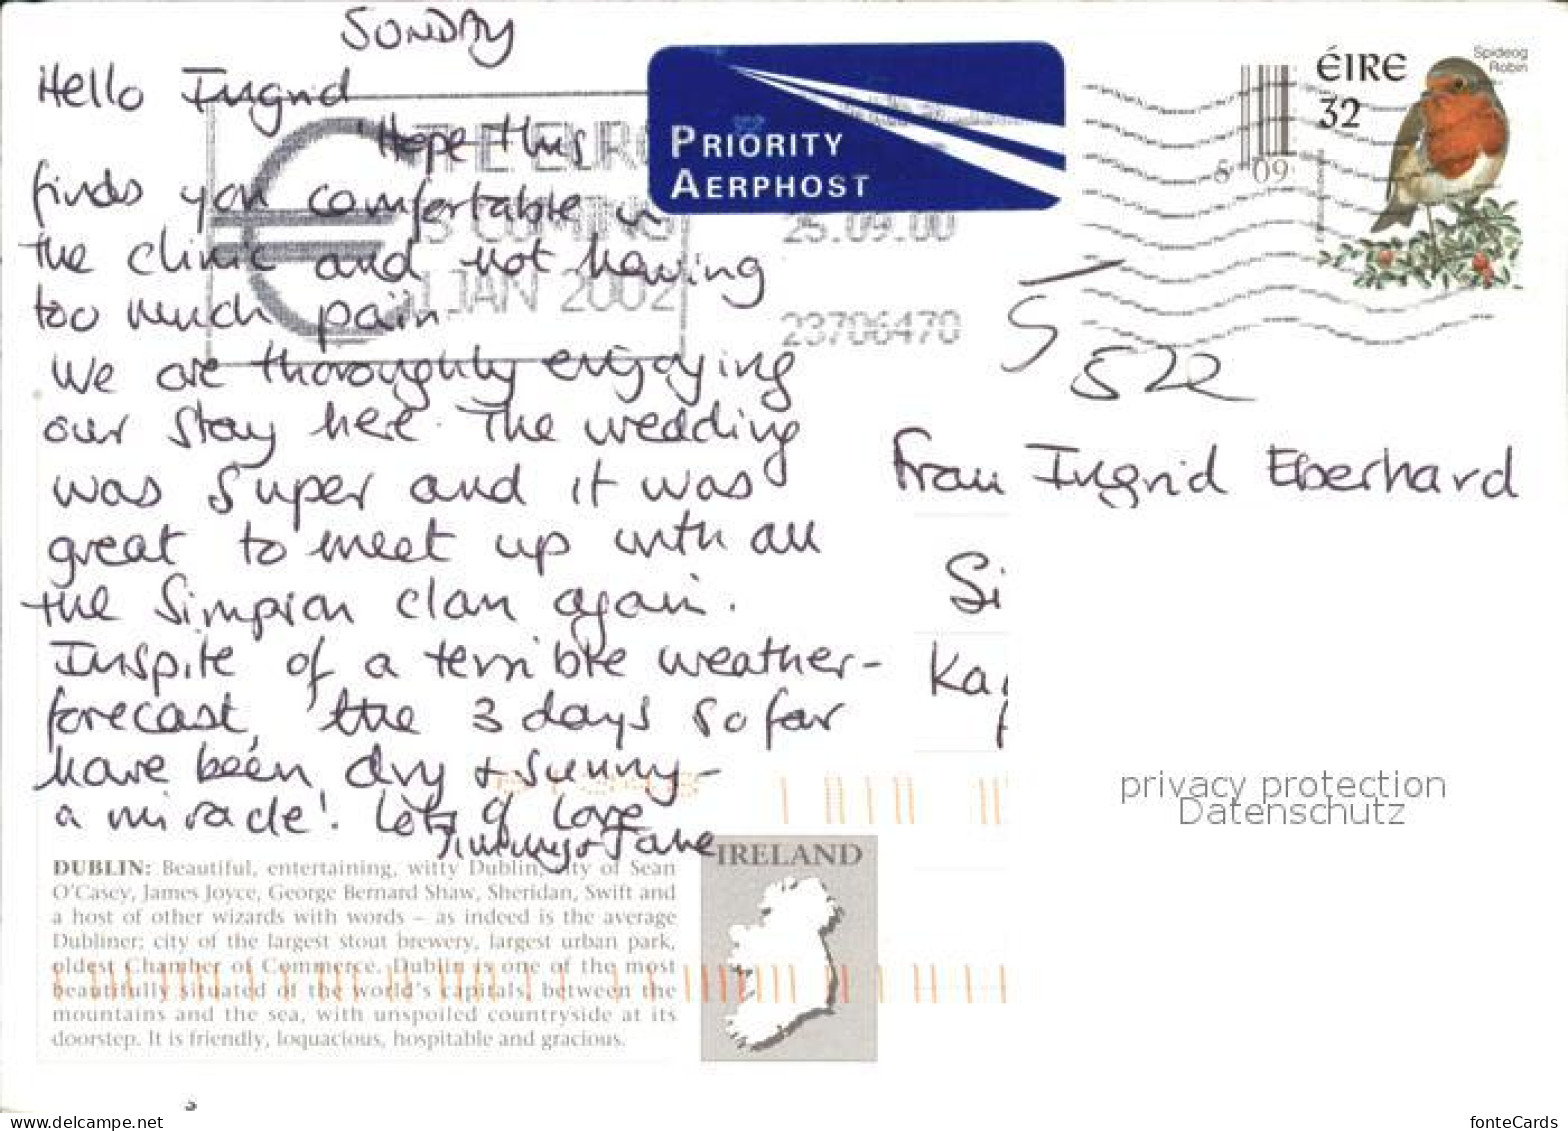 SUNDAY
Hello Ingrid
Hope this
finds you comfortable in
the clinic and not having
too much pain.
We are thoroughly enjoying
our stay here. The wedding
was super and it was
great to meet up with all
the Simpson clan again.
Inspite of a terrible weather-
forecast, the 3 days so far
have been dry + sunny -
a miracle! Lots of Love
Jimmy + Jane
THE EURO
IS COMING
1 JAN 2002
PRIORITY
AERPHOST
25.09.00
23706470
5 09
ÉIRE
32
Spideog
Robin
5
522
Frau Ingrid Eberhard
Si
Ka
privacy protection
Datenschutz
DUBLIN: Beautiful, entertaining, witty Dublin, city of Sean
O'Casey, James Joyce, George Bernard Shaw, Sheridan, Swift and
a host of other wizards with words – as indeed is the average
Dubliner; city of the largest stout brewery, largest urban park,
oldest Chamber of Commerce. Dublin is one of the most
beautifully situated of the world's capitals, between the
mountains and the sea, with unspoiled countryside at its
doorstep. It is friendly, loquacious, hospitable and gracious.
IRELAND
www.delcampe.net
fonteCards